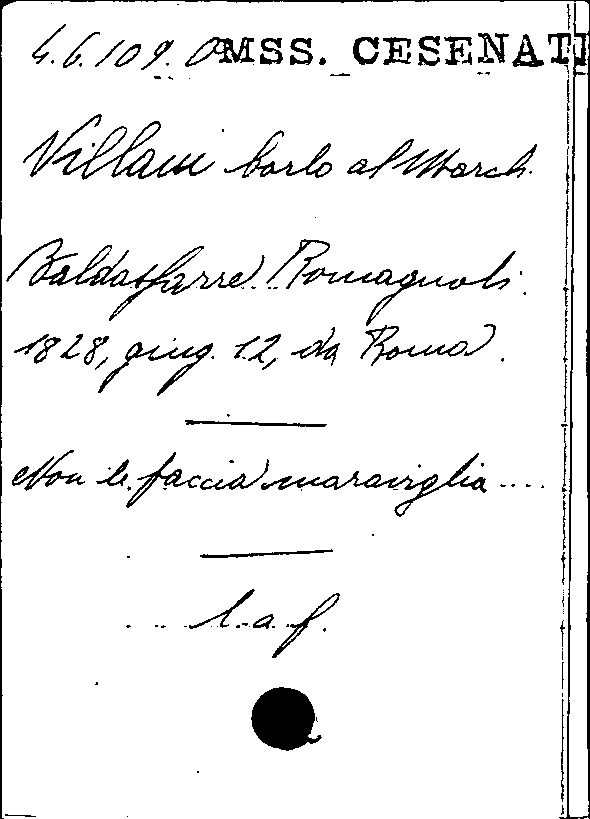 4.6.109.0 MSS. CESENATI
Villani Carlo al March.
Baldassarre Romagnoli.
1828, giug. 12, da Roma.
Non le faccia maraviglia....
l. a. f.